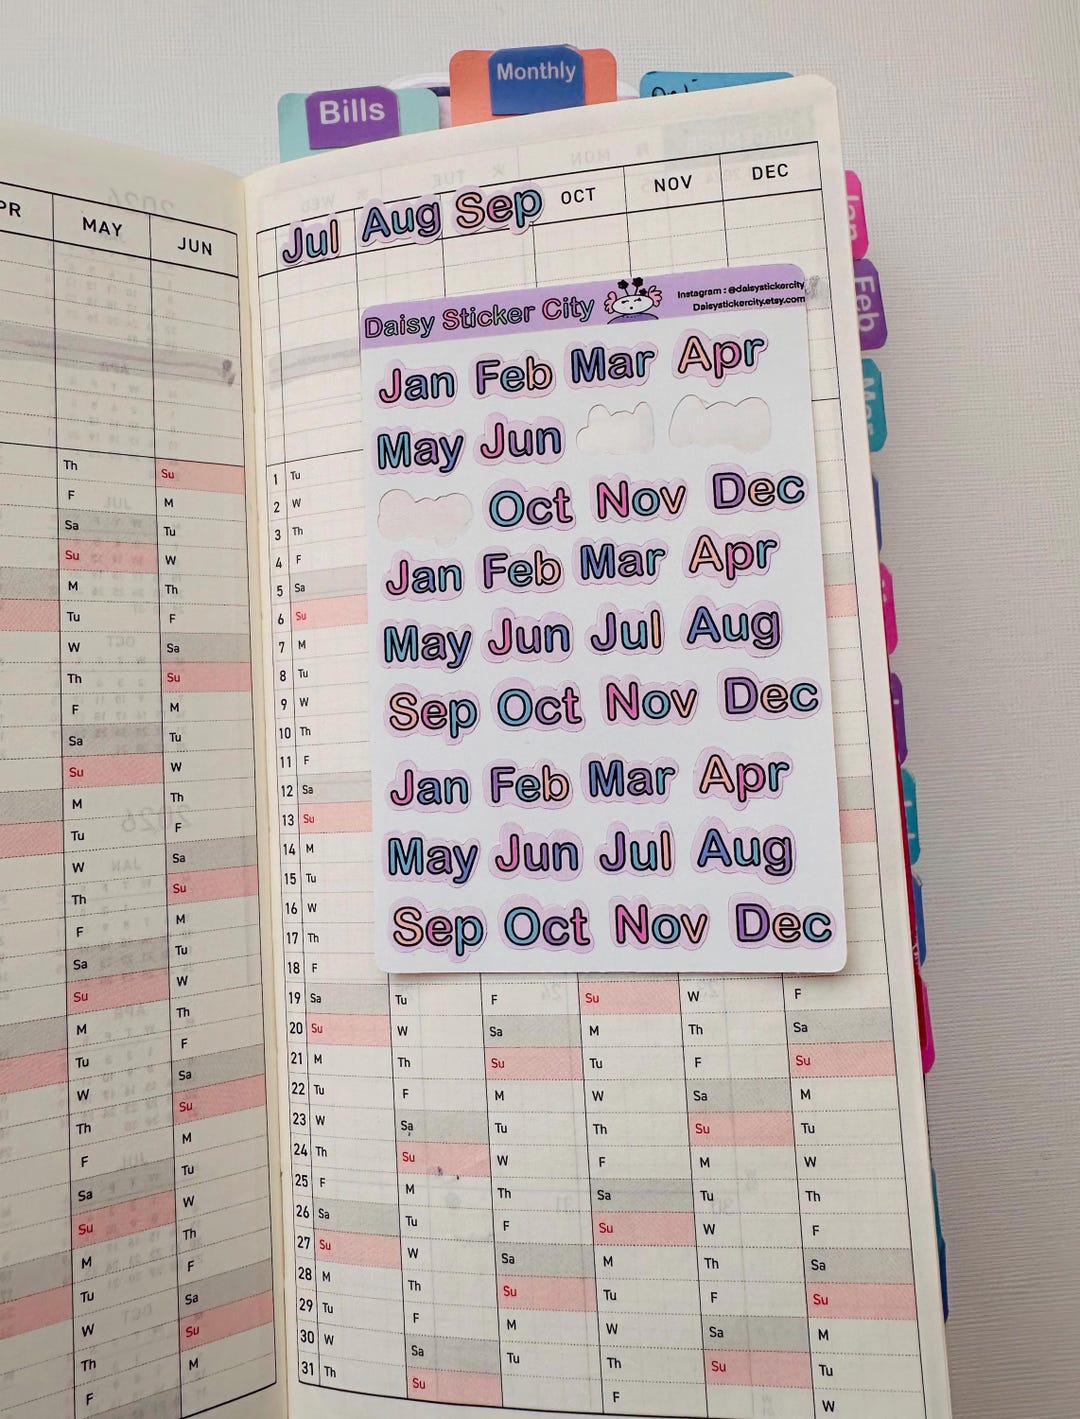 Bills
Monthly
PR MAY JUN
Jul Aug Sep OCT NOV DEC
Daisy Sticker City
Instagram : @daisystickercity
Daisystickercity.etsy.com
Jan Feb Mar Apr
May Jun
Oct Nov Dec
Jan Feb Mar Apr
May Jun Jul Aug
Sep Oct Nov Dec
Jan Feb Mar Apr
May Jun Jul Aug
Sep Oct Nov Dec
Jan
Feb
Mar
Th Su
F M
Sa Tu
Su W
M Th
Tu F
W Sa
Th Su
F M
Sa Tu
Su W
M Th
Tu F
W Sa
Th Su
F M
Sa Tu
Su W
M Th
Tu F
W Sa
Th Su
F M
Sa Tu
Su W
M Th
Tu F
W Sa
Th Su
F M
1 Tu
2 W
3 Th
4 F
5 Sa
6 Su
7 M
8 Tu
9 W
10 Th
11 F
12 Sa
13 Su
14 M
15 Tu
16 W
17 Th
18 F
19 Sa Tu F Su W F
20 Su W Sa M Th Sa
21 M Th Su Tu F Su
22 Tu F M W Sa M
23 W Sa Tu Th Su Tu
24 Th Su W F M W
25 F M Th Sa Tu Th
26 Sa Tu F Su W F
27 Su W Sa M Th Sa
28 M Th Su Tu F Su
29 Tu F M W Sa M
30 W Sa Tu Th Su Tu
31 Th Su F W